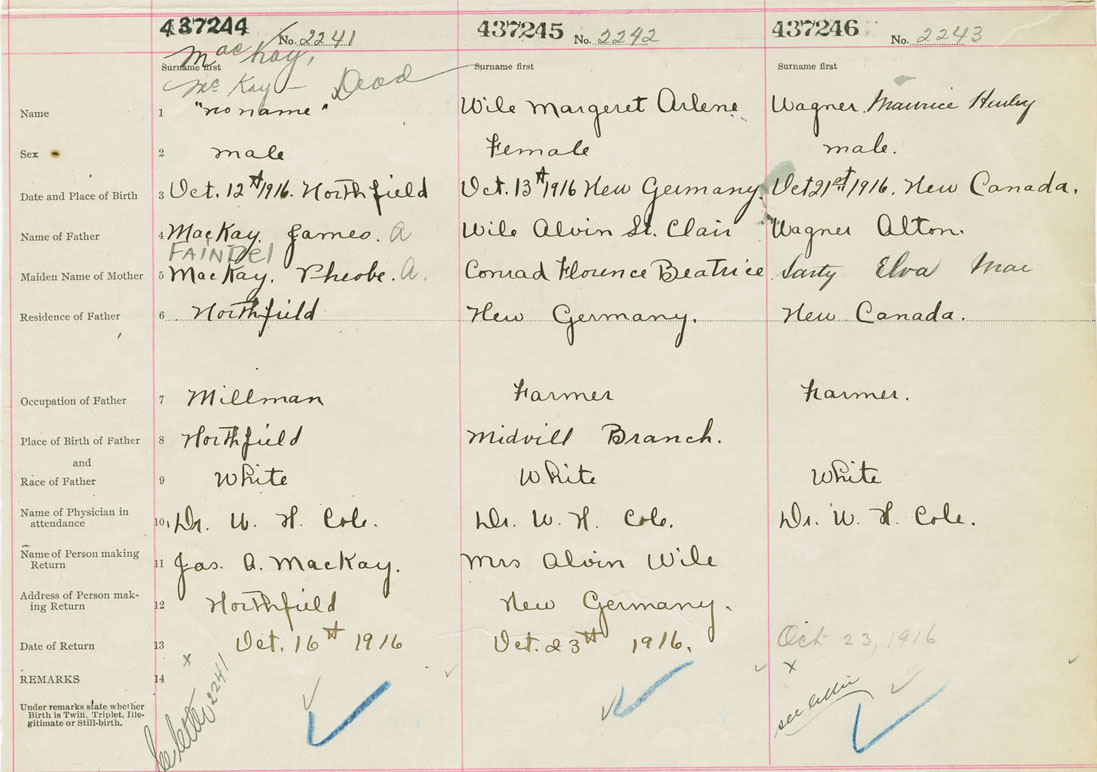 437244 No. 2241 437245 No. 2242 437246 No. 2243
MacKay,
Surname first Surname first Surname first
McKay — Dead
Name 1 "no name" Wile Margaret Arlene Wagner Maurice Henley
Sex 2 male Female male.
Date and Place of Birth 3 Oct. 12th 1916. Northfield Oct. 13th 1916 New Germany. Oct 21st 1916. New Canada.
Name of Father 4 MacKay James. A Wile Alvin St. Clair Wagner Alton.
FAINDEl
Maiden Name of Mother 5 MacKay. Pheobe. A. Conrad Florence Beatrice Sarty Elva Mae
Residence of Father 6 Northfield New Germany. New Canada.
Occupation of Father 7 Millman Farmer Farmer.
Place of Birth of Father 8 Northfield Midvill Branch.
and
Race of Father 9 White White White
Name of Physician in
attendance 10, Dr. W. H. Cole. Dr. W. H. Cole. Dr. W. H. Cole.
Name of Person making
Return 11 Jas. A. MacKay. Mrs Alvin Wile
Address of Person mak-
ing Return 12 Northfield New Germany.
Date of Return 13 Oct. 16th 1916 Oct. 23th 1916. Oct 23, 1916
x x
REMARKS 14
See letter 2241 see letter
Under remarks state whether
Birth is Twin, Triplet, Ille-
gitimate or Still-birth.